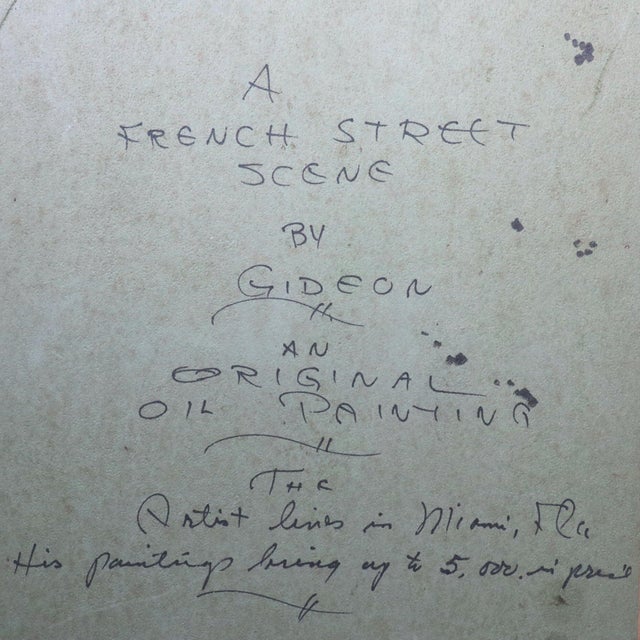 A
FRENCH STREET
SCENE
BY
GIDEON
AN
ORIGINAL
OIL PAINTING
THE
Artist lives in Miami, Fla
His paintings bring up to 5,000. in price